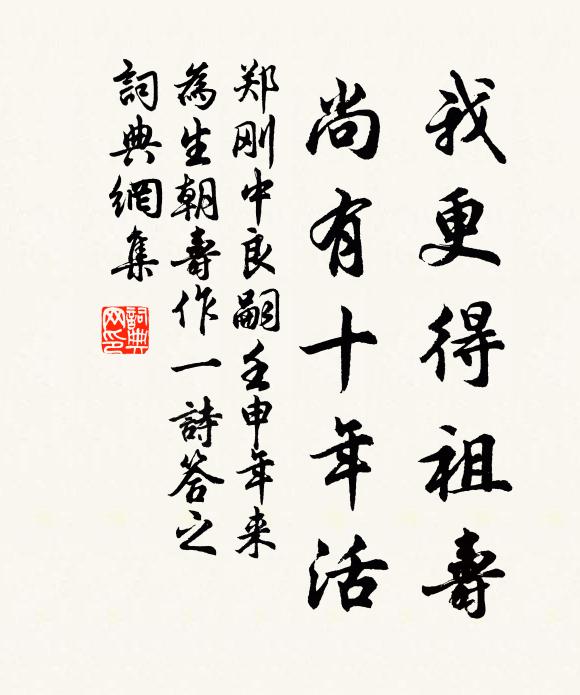 我更得祖壽
尚有十年活
郑刚中良嗣壬申年来
為生朝壽作一詩答之
詞典網集
詞典网印